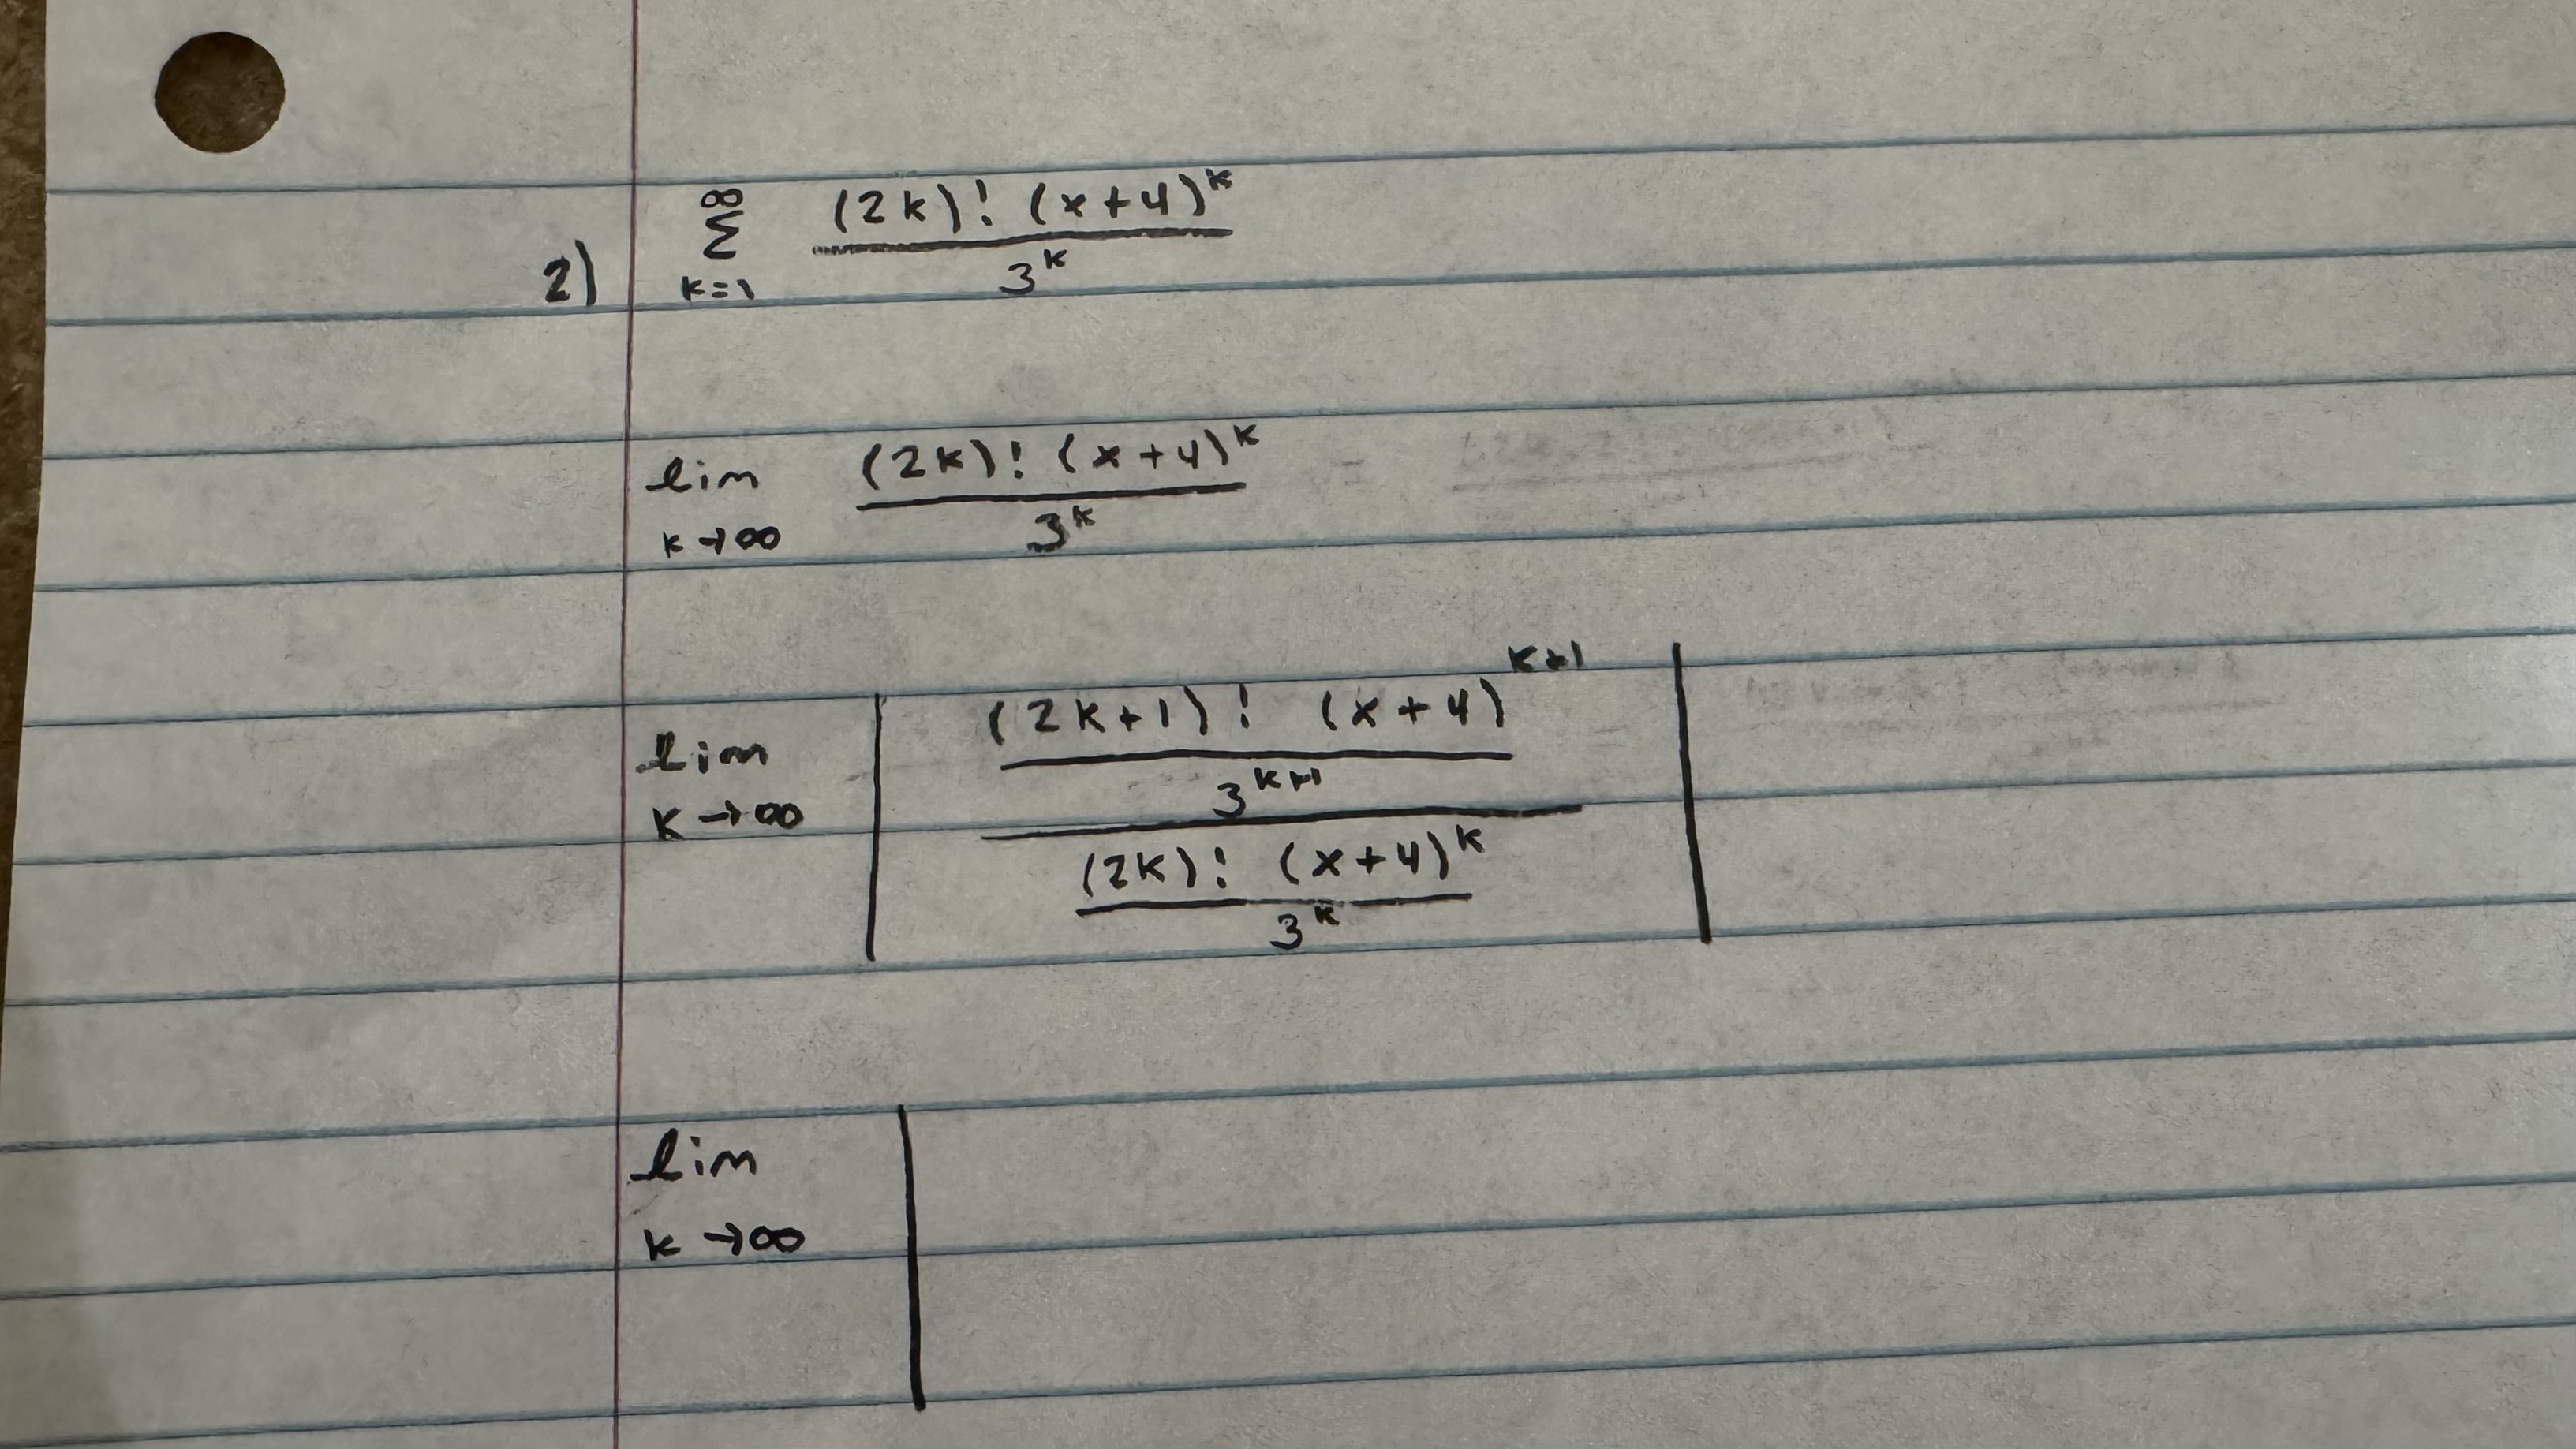 2) ∞ Σ k=1 (2k)! (x+4)^k / 3^k
lim k→∞ (2k)! (x+4)^k / 3^k
lim k→∞ | ((2k+1)! (x+4)^(k+1) / 3^(k+1)) / ((2k)! (x+4)^k / 3^k) |
lim k→∞ |